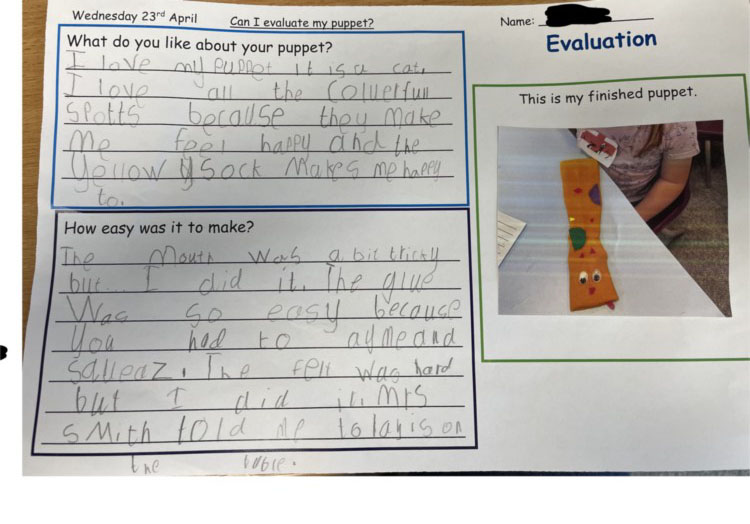 Wednesday 23rd April
Can I evaluate my puppet?
Name:
Evaluation
What do you like about your puppet?
I love my puppet it is a cat.
I love all the coluerfull
spotts because they make
me feel happy and the
yellow sock makes me happy
to.
This is my finished puppet.
How easy was it to make?
The mouth was a bit tricky
but I did it. The glue
was so easy because
you had to ayme and
salleaz. The felt was hard
but I did it. Mrs
smith told me to lay is on
the table.